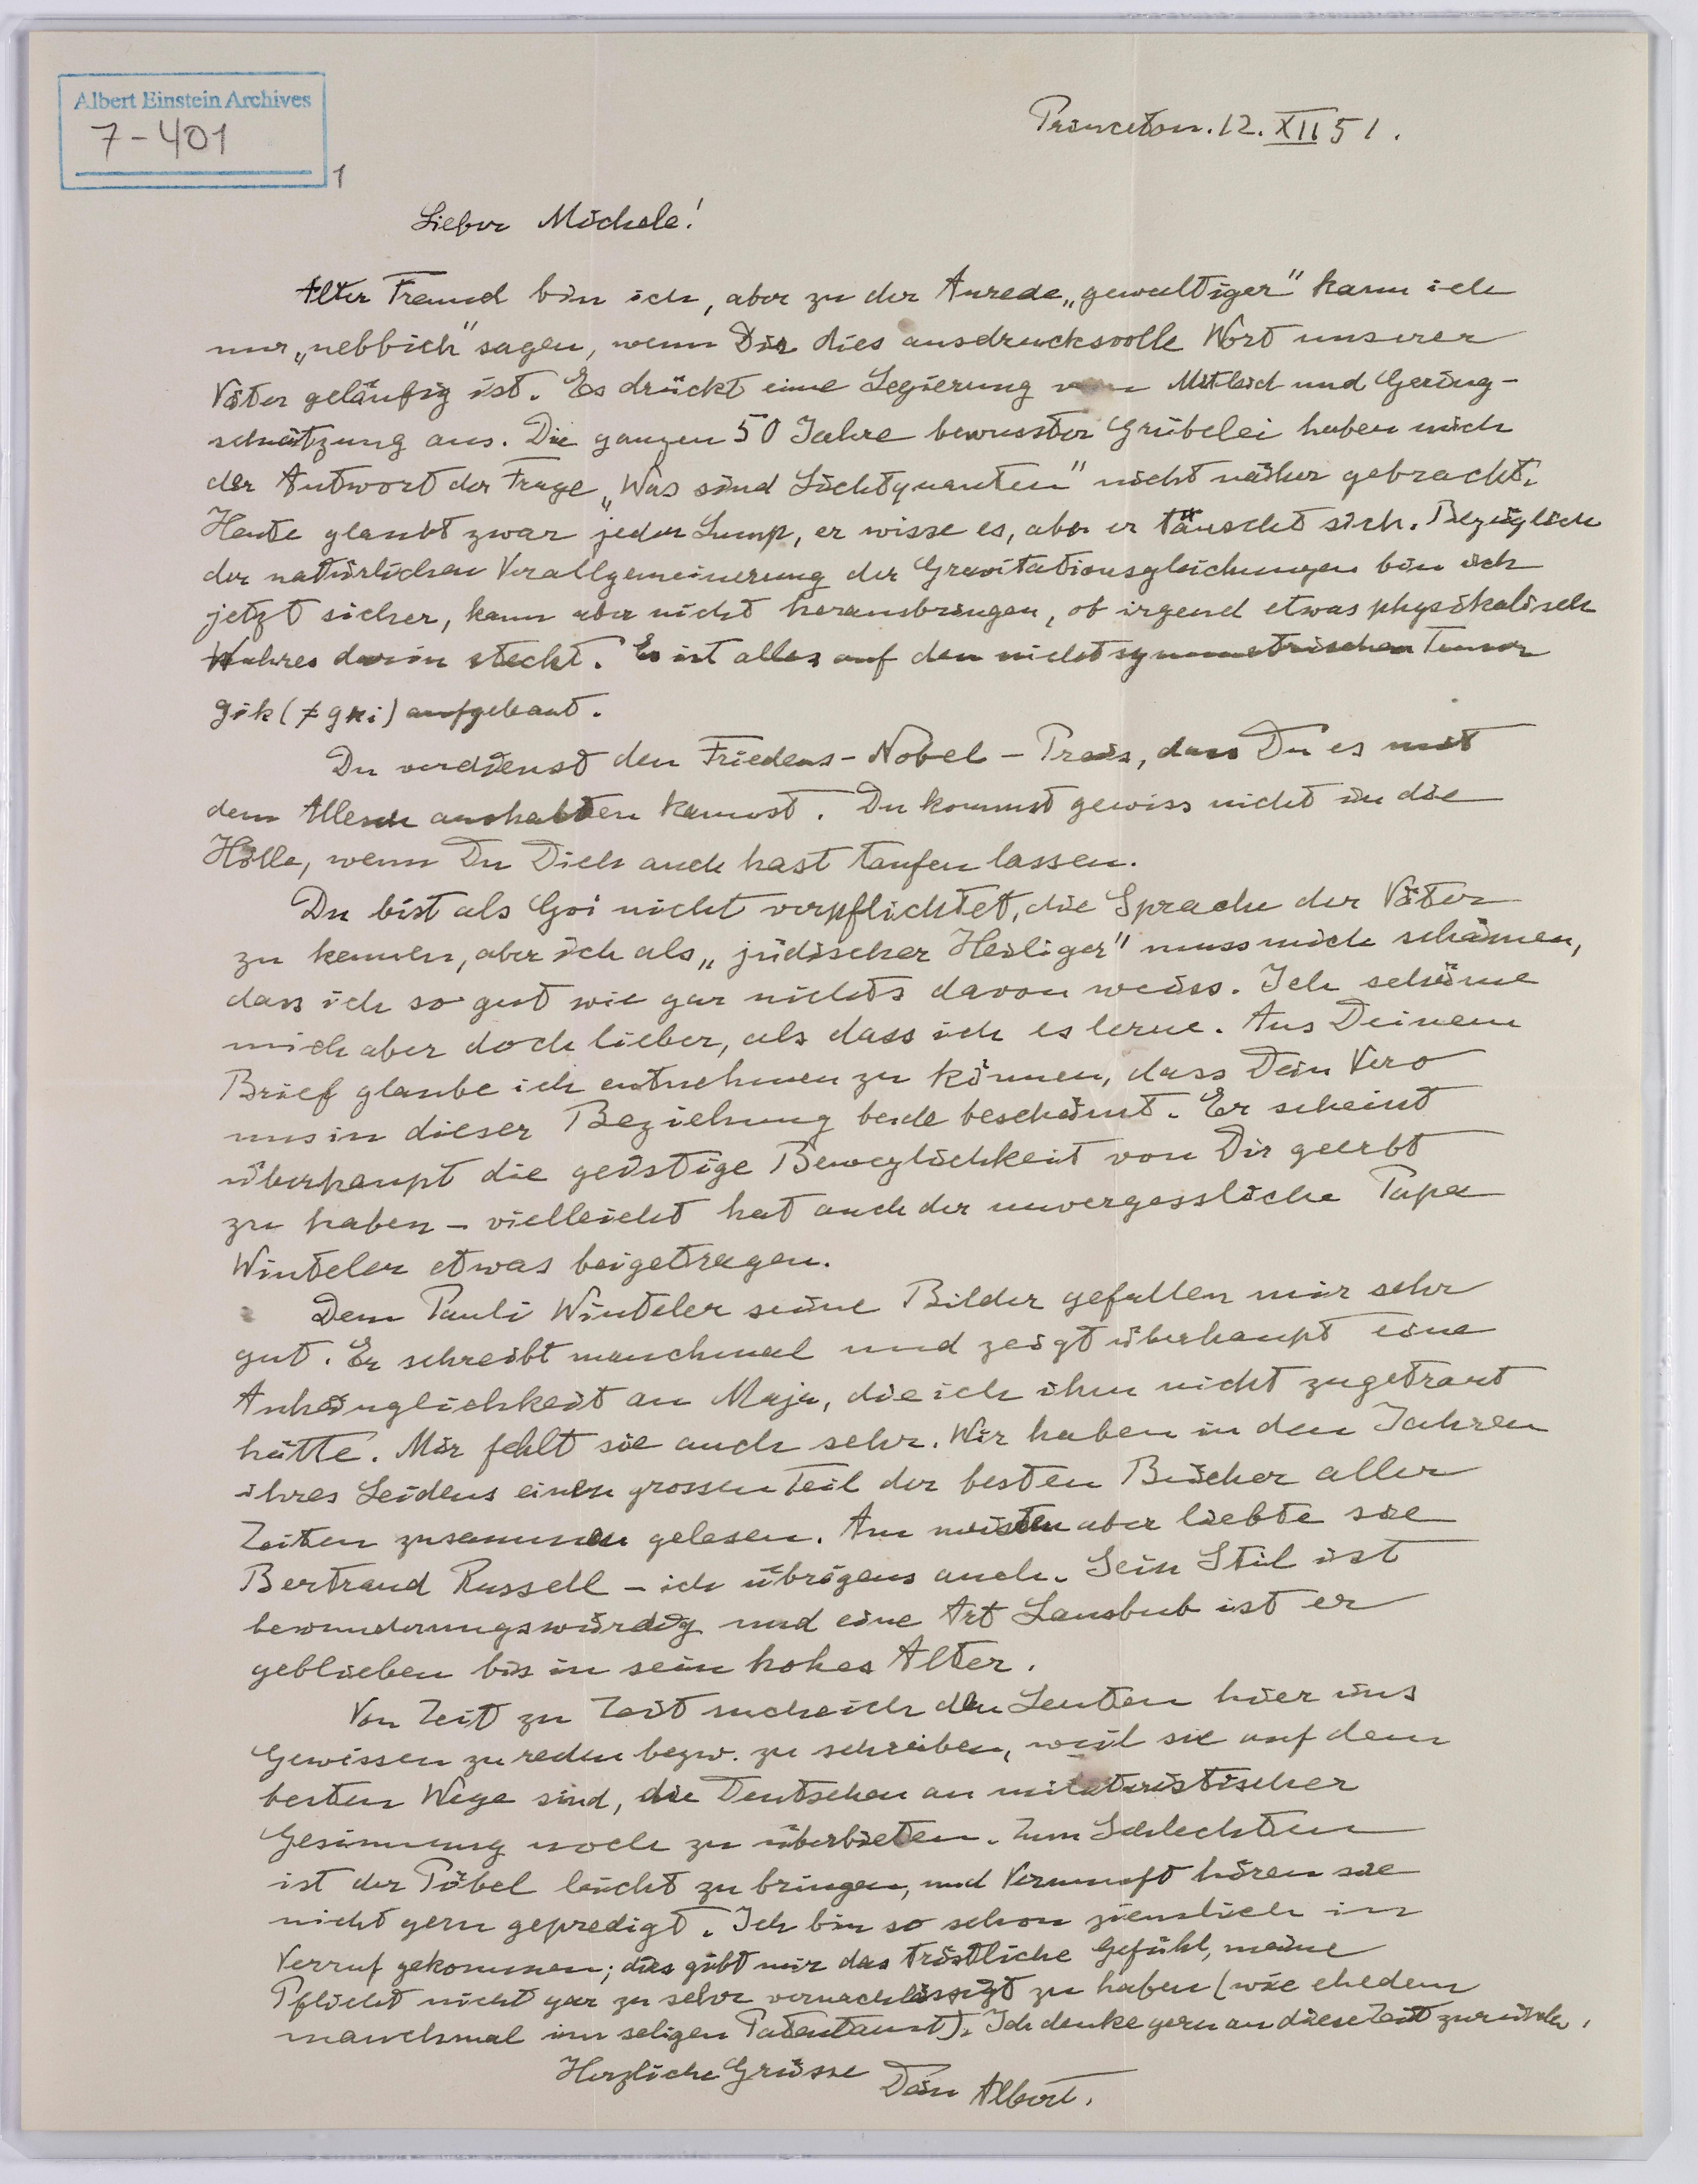 Albert Einstein Archives
7-401
1
Princeton. 12. XII 51.
Lieber Michele!
Alter Freund bin ich, aber zu der Anrede „gewaltiger" kann ich
nur „nebbich" sagen, wenn Dir dies ausdrucksvolle Wort unserer
Väter geläufig ist. Es drückt eine Legierung von Mitleid und Gering-
schätzung aus. Die ganzen 50 Jahre bewusster Grübelei haben mich
der Antwort der Frage „Was sind Lichtquanten" nicht näher gebracht.
Heute glaubt zwar jeder Lump, er wisse es, aber er täuscht sich. Bezüglich
der natürlichen Verallgemeinerung der Gravitationsgleichungen bin ich
jetzt sicher, kann aber nicht herausbringen, ob irgend etwas physikalisch
Wahres darin steckt. Es ist alles auf den nichtsymmetrischen Tensor
gik (≠ gki) aufgebaut.
Du verdienst den Friedens-Nobel-Preis, dass Du es mit
dem aushalten kannst. Du kommst gewiss nicht in die
Hölle, wenn Du Dich auch hast taufen lassen.
Du bist als Goi nicht verpflichtet, die Sprache der Väter
zu kennen, aber ich als „jüdischer Heiliger" muss mich schämen,
dass ich so gut wie gar nichts davon weiss. Ich schäme
mich aber doch lieber, als dass ich es lerne. Aus Deinem
Brief glaube ich entnehmen zu können, dass Dein Vero
uns in dieser Beziehung beide beschämt. Er scheint
überhaupt die geistige Beweglichkeit von Dir geerbt
zu haben – vielleicht hat auch der unvergessliche Papa
Winteler etwas beigetragen.
Dem Pauli Winteler seine Bilder gefallen mir sehr
gut. Er schreibt manchmal und zeigt überhaupt eine
Anhänglichkeit an Maja, die ich ihm nicht zugetraut
hätte. Mir fehlt sie auch sehr. Wir haben in den Jahren
ihres Leidens einen grossen Teil der besten Bücher aller
Zeiten zusammen gelesen. Am meisten aber liebte sie
Bertrand Russell – ich übrigens auch. Sein Stil ist
bewunderungswürdig und eine Art Lausbub ist er
geblieben bis in sein hohes Alter.
Von Zeit zu Zeit suche ich den Leuten hier ins
Gewissen zu reden bezw. zu schreiben, weil sie auf dem
besten Wege sind, die Deutschen an militaristischer
Gesinnung noch zu überbieten. Zum Schlechten
ist der Pöbel leicht zu bringen, und Vernunft hören sie
nicht gern gepredigt. Ich bin so schon ziemlich in
Verruf gekommen; dies gibt mir das tröstliche Gefühl, meine
Pflicht nicht gar zu sehr vernachlässigt zu haben (wie ehedem
manchmal im seligen Patentamt). Ich denke gern an diese Zeit zurück.
Herzliche Grüsse
Dein Albert.